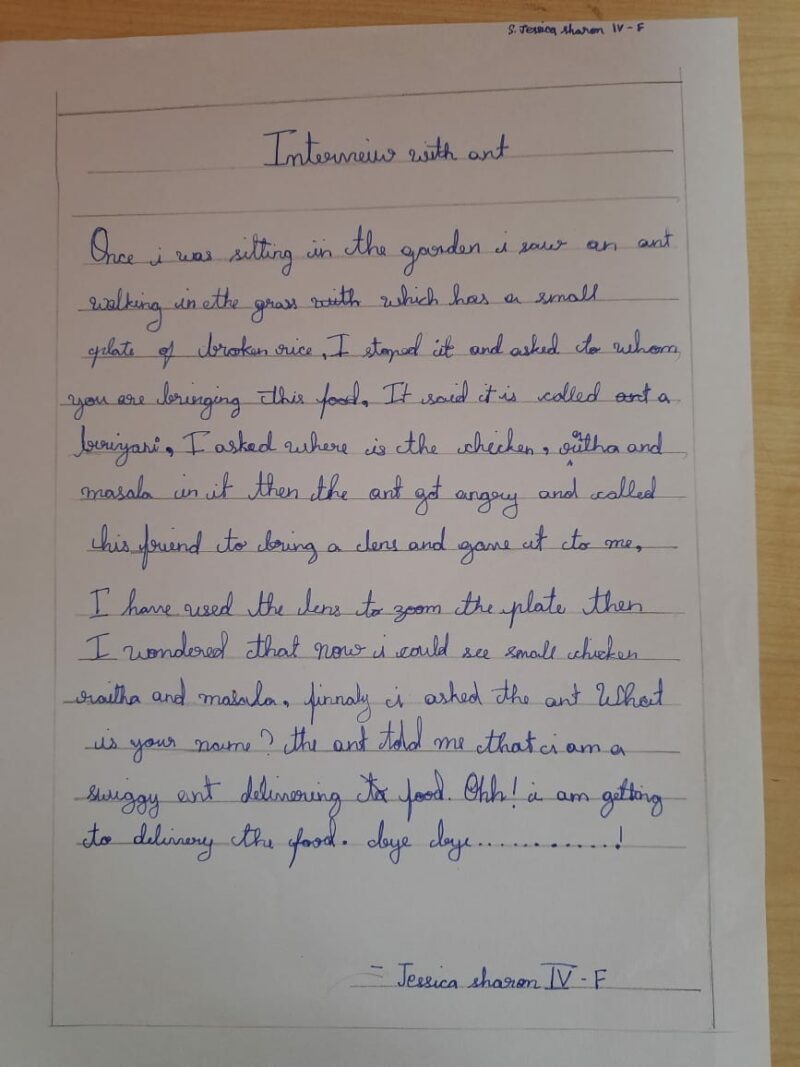 S. Jessica sharon IV - F
Interview with ant
Once i was sitting in the garden i saw an ant
walking in the grass with which has a small
plate of broken rice, I stoped it and asked to whom
you are bringing this food. It said it is called ant a
biriyani, I asked where is the chicken, raitha and
masala in it then the ant got angry and called
his friend to bring a lens and gave it to me,
I have used the lens to zoom the plate then
I wondered that now i could see small chicken
raitha and masala, finnaly i asked the ant What
is your name? the ant told me that i am a
swiggy ant delivering to food. Ohh! i am getting
to delivery the food. bye bye............!
- Jessica sharon IV - F